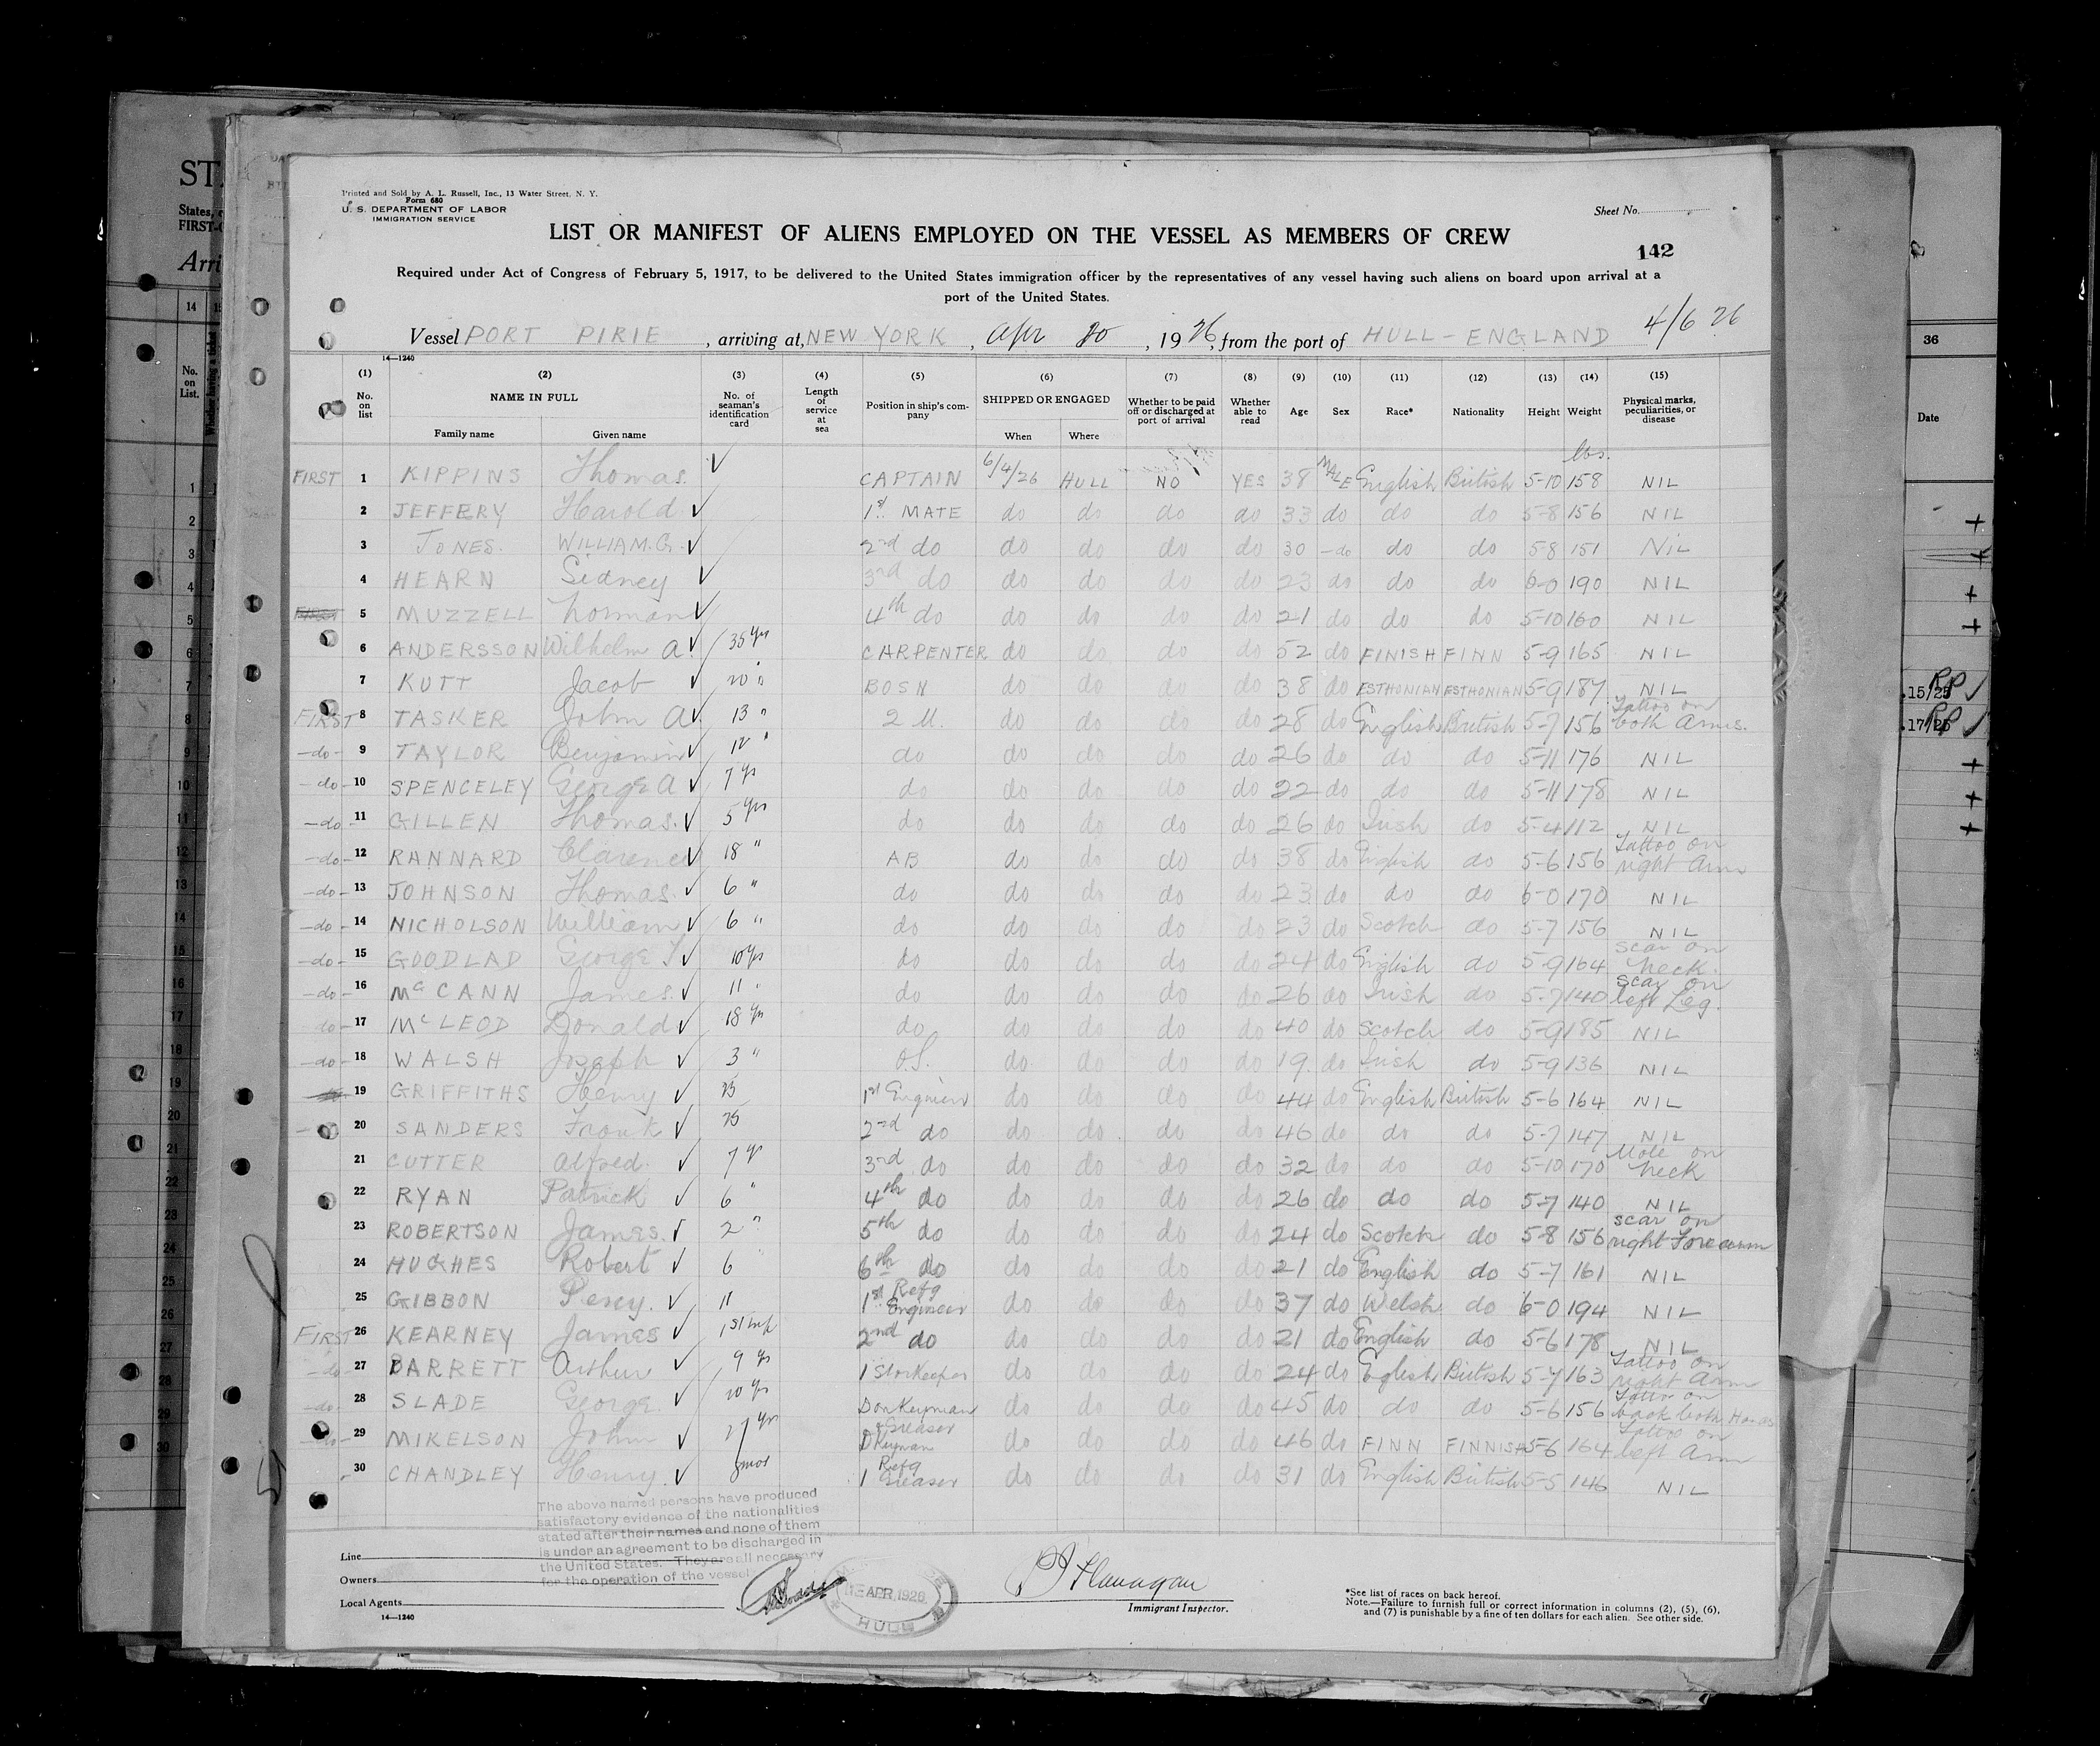 STA
States,
FIRST-C
Arri
Printed and Sold by A. L. Russell, Inc., 13 Water Street, N. Y.
Form 680
U. S. DEPARTMENT OF LABOR
IMMIGRATION SERVICE
Sheet No.
LIST OR MANIFEST OF ALIENS EMPLOYED ON THE VESSEL AS MEMBERS OF CREW
142
Required under Act of Congress of February 5, 1917, to be delivered to the United States immigration officer by the representatives of any vessel having such aliens on board upon arrival at a
port of the United States.
Vessel PORT PIRIE, arriving at, NEW YORK, Apr 20, 1926, from the port of HULL - ENGLAND 4/6 26
14—1240
(1) (2) (3) (4) (5) (6) (7) (8) (9) (10) (11) (12) (13) (14) (15)
No. on list NAME IN FULL Family name Given name No. of seaman's identification card Length of service at sea Position in ship's company SHIPPED OR ENGAGED When Where Whether to be paid off or discharged at port of arrival Whether able to read Age Sex Race* Nationality Height Weight Physical marks, peculiarities, or disease
lbs.
FIRST 1 KIPPINS Thomas. ✓ CAPTAIN 6/4/26 HULL NO YES 38 MALE English British 5-10 158 NIL
2 JEFFERY Harold ✓ 1st MATE do do do do 33 do do do 5-8 156 NIL
3 JONES. WILLIAM.G. ✓ 2nd do do do do do 30 -do do do 5-8 151 NIL
4 HEARN Sidney ✓ 3rd do do do do do 23 do do do 6-0 190 NIL
FIRST 5 MUZZELL Norman ✓ 4th do do do do do 21 do do do 5-10 160 NIL
6 ANDERSSON Wilhelm A. ✓ 35 yrs CARPENTER do do do do 52 do FINISH FINN 5-9 165 NIL
7 KUTT Jacob ✓ 20 " BOSN do do do do 38 do ESTHONIAN ESTHONIAN 5-9 187 NIL
FIRST 8 TASKER John A. ✓ 13 " 2 M. do do do do 28 do English British 5-7 156 Tattoo on both Arms.
-do- 9 TAYLOR Benjamin ✓ 12 " do do do do do 26 do do do 5-11 176 NIL
-do- 10 SPENCELEY George A ✓ 7 yrs do do do do do 22 do do do 5-11 178 NIL
-do- 11 GILLEN Thomas. ✓ 5 yrs do do do do do 26 do Irish do 5-4 112 NIL
-do- 12 RANNARD Clarence ✓ 18 " AB do do do do 38 do English do 5-6 156 Tattoo on right Arm
-do- 13 JOHNSON Thomas. ✓ 6 " do do do do do 23 do do do 6-0 170 NIL
-do- 14 NICHOLSON William ✓ 6 " do do do do do 23 do Scotch do 5-7 156 NIL
-do- 15 GOODLAD George T ✓ 10 yrs do do do do do 24 do English do 5-9 164 scar on neck.
-do- 16 McCANN James. ✓ 11 " do do do do do 26 do Irish do 5-7 140 scar on left Leg.
do- 17 McLEOD Donald ✓ 18 yrs do do do do do 40 do Scotch do 5-9 185 NIL
-do- 18 WALSH Joseph ✓ 3 " O.S. do do do do 19. do Irish do 5-9 136 NIL
19 GRIFFITHS Henry ✓ 1st Engineer do do do do 44 do English British 5-6 164 NIL
20 SANDERS Frank ✓ 2nd do do do do do 46 do do do 5-7 147 NIL
21 CUTTER Alfred. ✓ 7 yr 3rd do do do do do 32 do do do 5-10 170 Mole on neck
22 RYAN Patrick ✓ 6 " 4th do do do do do 26 do do do 5-7 140 NIL
23 ROBERTSON James. ✓ 2 " 5th do do do do do 24 do Scotch do 5-8 156 scar on right Forearm
24 HUGHES Robert ✓ 6 6th do do do do do 21 do English do 5-7 161 NIL
25 GIBBON Percy. ✓ 11 1st Refg Engineer do do do do 37 do Welsh do 6-0 194 NIL
FIRST 26 KEARNEY James ✓ 1st trip 2nd do do do do do 21 do English do 5-6 178 NIL
-do 27 BARRETT Arthur ✓ 9 yrs 1 Storkeeper do do do do 24 do English British 5-7 163 Tattoo on right Arm
-do- 28 SLADE George. ✓ 20 yrs Donkeyman & Greaser do do do do 45 do do do 5-6 156 Tattoo on back both Hands
-do- 29 MIKELSON John ✓ 27 yrs DKeyman do do do do 46 do FINN FINNISH 5-6 164 Tattoo on left Arm
30 CHANDLEY Henry. ✓ mos Refg 1 Greaser do do do do 31 do English British 5-5 146 NIL
The above named persons have produced
satisfactory evidence of the nationalities
stated after their names and none of them
is under an agreement to be discharged in
the United States. They are all necessary
for the operation of the vessel
Line
Owners
Local Agents
14—1240
APR 1926
HULL
P J Flanagan
Immigrant Inspector.
*See list of races on back hereof.
Note.—Failure to furnish full or correct information in columns (2), (5), (6),
and (7) is punishable by a fine of ten dollars for each alien. See other side.
36
Date
15/25
17/25